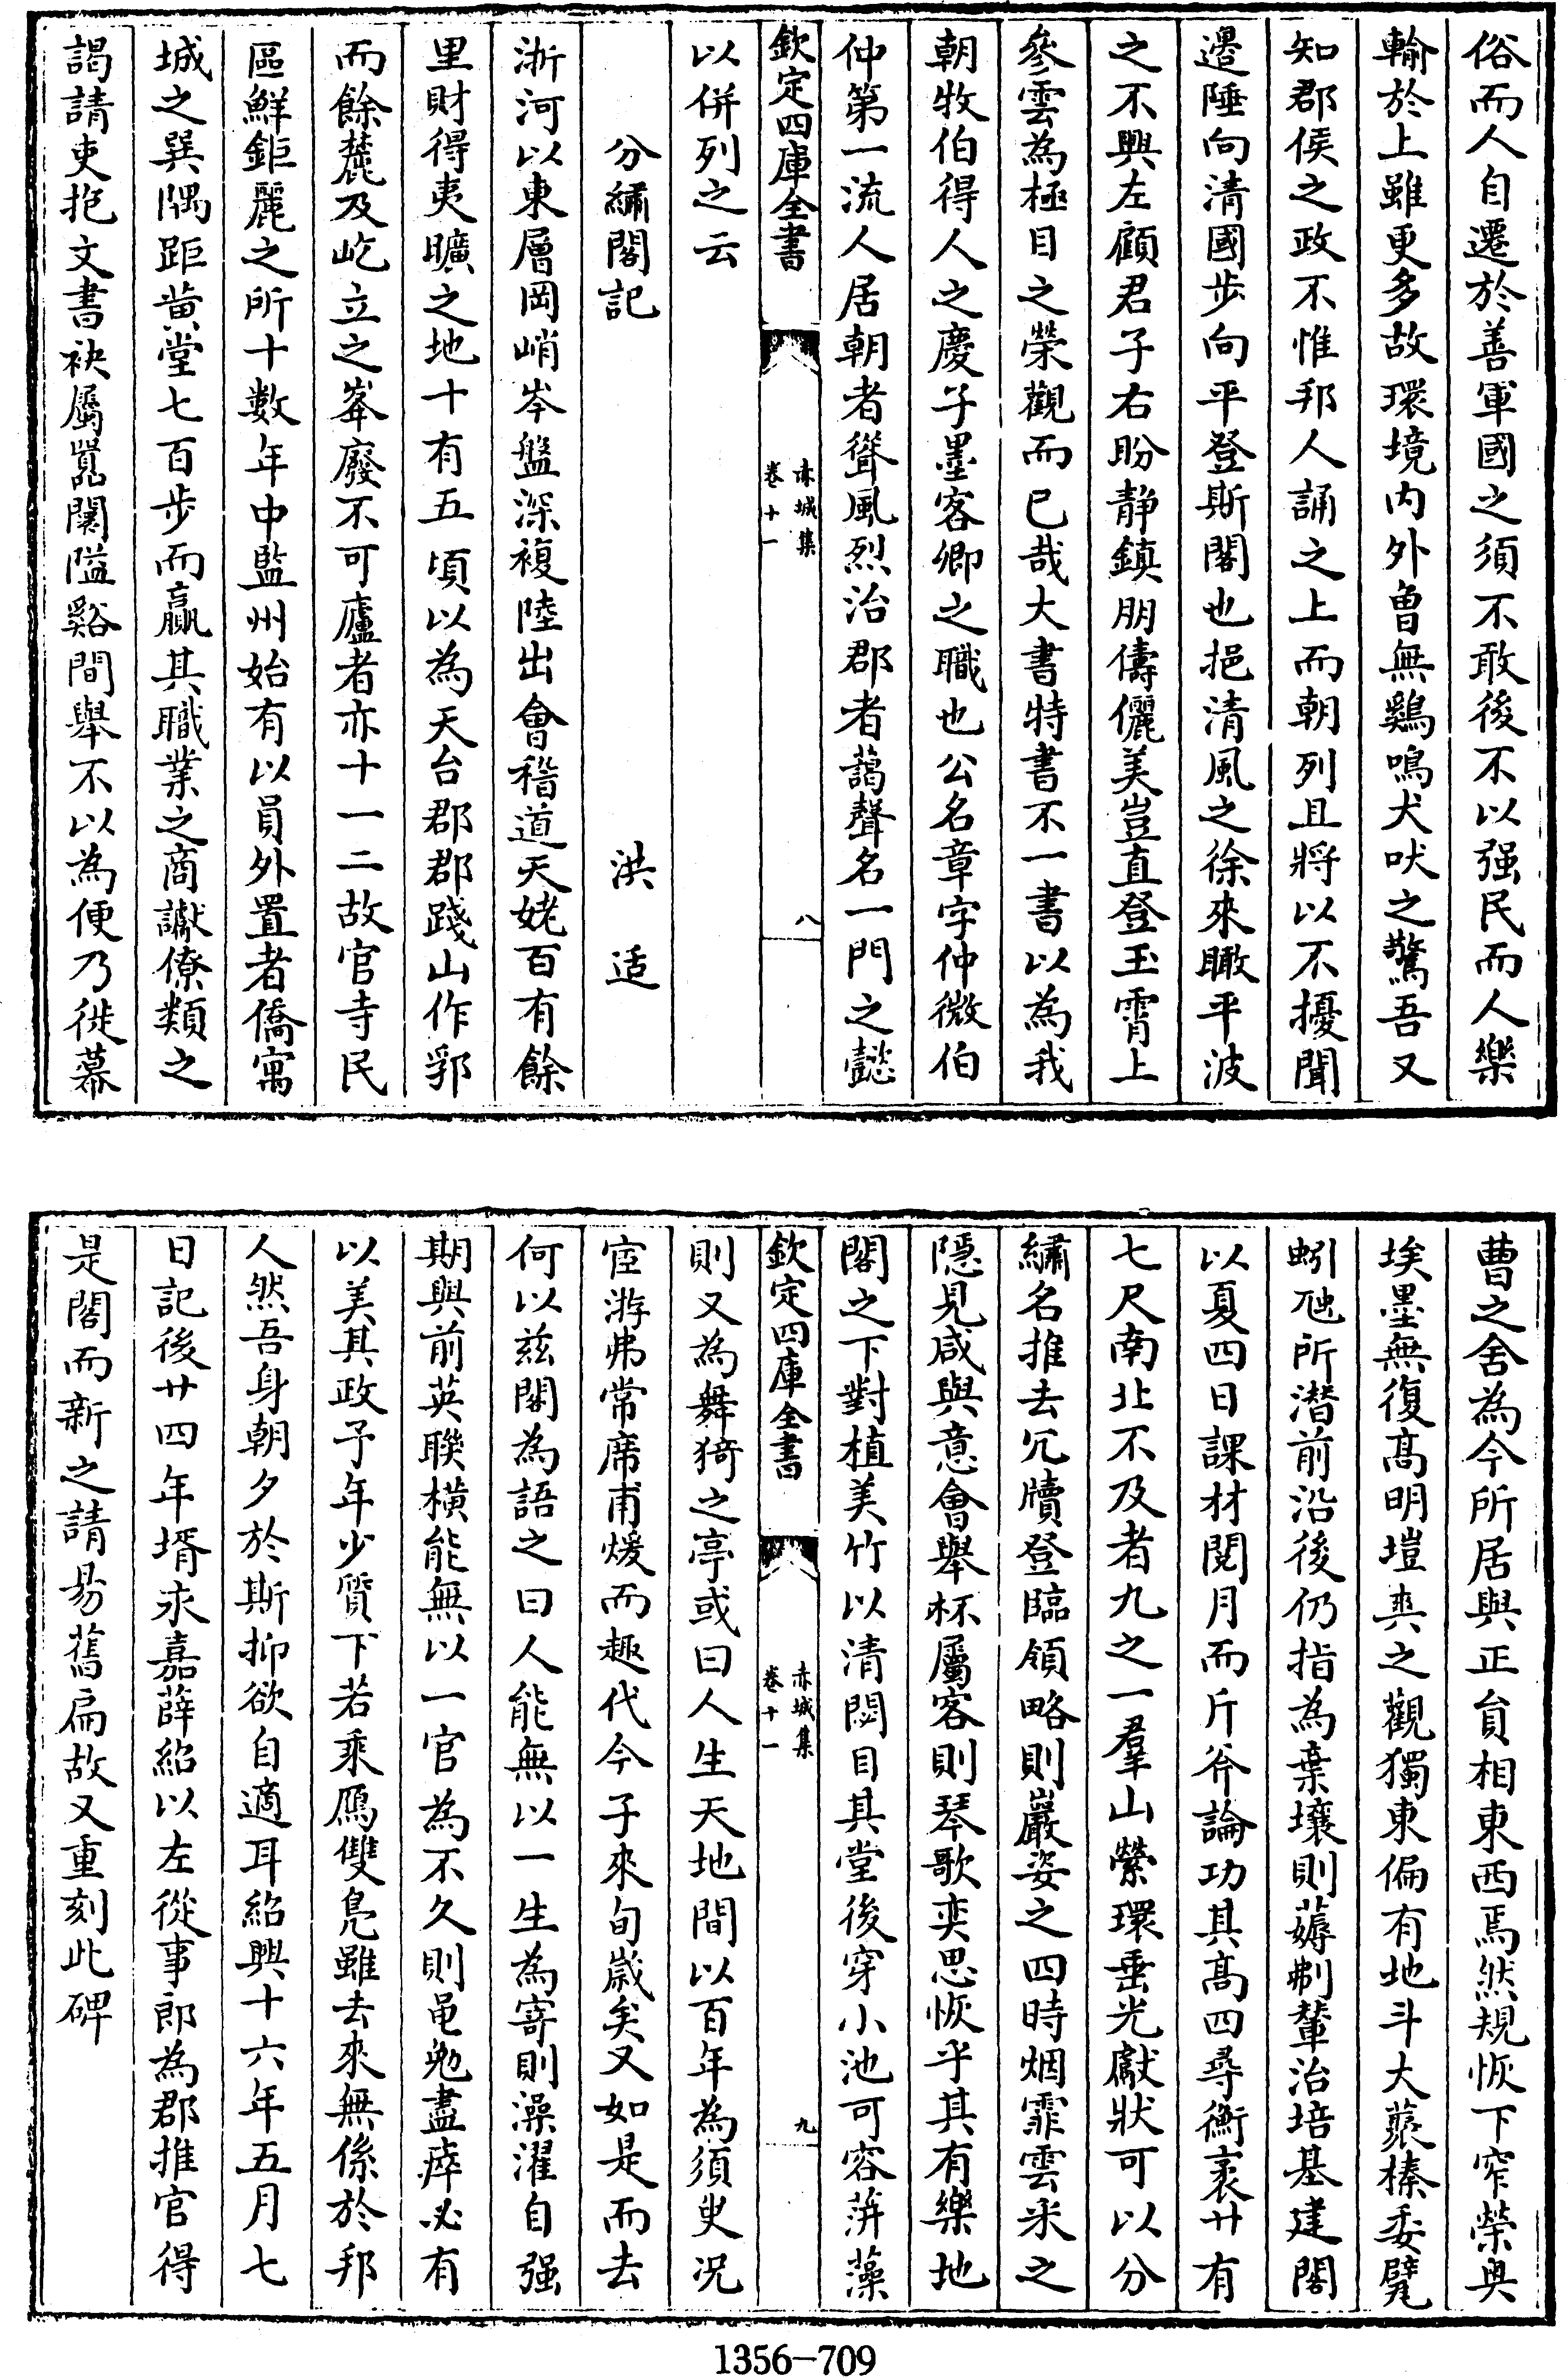 俗而人自遷於善軍國之須不敢後不以强民而人樂
輸於上雖更多故環境内外曽無鷄鳴犬吠之驚吾又
知郡侯之政不惟邦人誦之上而朝列且將以不擾聞
邊陲向清國步向平登斯閣也挹清風之徐來瞰平波
之不興左顧君子右盼靜鎮朋儔儷美豈直登玉霄上
參雲為極目之榮觀而已哉大書特書不一書以為我
朝牧伯得人之慶子墨客卿之職也公名章字仲微伯
仲第一流人居朝者聳風烈治郡者藹聲名一門之懿
欽定四庫全書 赤城集 卷十一 八
以併列之云
分繡閣記 洪适
浙河以東層岡峭岑盤深複陸出會稽道天姥百有餘
里財得夷曠之地十有五頃以為天台郡郡踐山作郛
而餘麓及屹立之峯廢不可廬者亦十一二故官寺民
區鮮鉅麗之所十數年中監州始有以員外置者僑寓
城之巽隅距黄堂七百步而贏其職業之商讞僚類之
謁請吏抱文書袂屬嚚闤隘谿間舉不以為便乃徙幕
曹之舍為今所居與正貟相東西焉然規恢下窄榮奥
埃墨無復髙明塏爽之觀獨東偏有地斗大蕟榛委甓
蚓虺所潜前沿後仍指為棄壤則薅剸輦治培基建閣
以夏四日課材閱月而斤斧論功其髙四尋衡袤廿有
七尺南北不及者九之一羣山縈環垂光獻狀可以分
繡名推去冗牘登臨領略則巖姿之四時烟霏雲采之
隱見咸與意會舉杯屬客則琴歌奕思恢乎其有樂地
閣之下對植美竹以清閟目其堂後穿小池可容蓱藻
欽定四庫全書 赤城集 卷十一 九
則又為舞猗之亭或曰人生天地間以百年為須臾况
宦游弗常席甫煖而趣代今子來旬嵗矣又如是而去
何以兹閣為語之曰人能無以一生為寄則澡濯自强
期與前英聫横能無以一官為不久則黽勉盡瘁必有
以美其政予年少質下若乘鴈雙鳧雖去來無係於邦
人然吾身朝夕於斯抑欲自適耳紹興十六年五月七
日記後廿四年壻永嘉薛紹以左從事郎為郡推官得
是閣而新之請易舊扁故又重刻此碑
1356-709